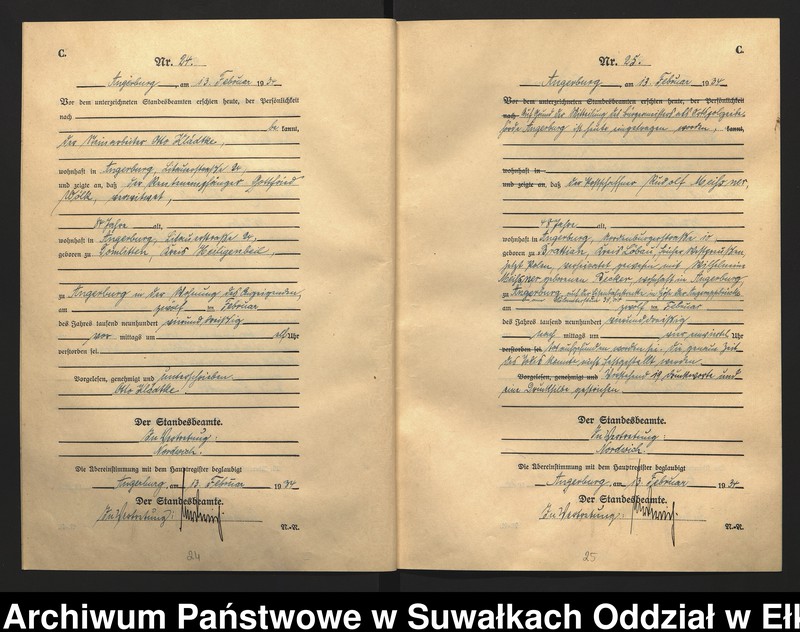 C.
Nr. 24.
Angerburg, am 13. Februar 1934
Vor dem unterzeichneten Standesbeamten erschien heute, der Persönlichkeit
nach
be kannt,
der Otto Klädtke,
wohnhaft in Angerburg,
und zeigte an, daß der Rentenempfänger Gottfried
verwitwet,
Jahre alt,
wohnhaft in Angerburg,
geboren zu Kreis Heiligenbeil,
zu Angerburg in der Wohnung des Anzeigenden,
am zwölf ten Februar
des Jahres tausend neunhundert vierunddreißig
vor mittags um elf Uhr
verstorben sei.
Vorgelesen, genehmigt und unterschrieben.
Otto Klädtke.
Der Standesbeamte.
In Vertretung:
Nordwich.
Die Übereinstimmung mit dem Hauptregister beglaubigt
Angerburg, am 13. Februar 1934
Der Standesbeamte.
In Vertretung:
24
C.
Nr. 25.
Angerburg, am 13. Februar 1934
Vor dem unterzeichneten Standesbeamten erschien heute, der Persönlichkeit
nach Auf Grund der Mitteilung des Bürgermeisters als Ortspolizeibe-
hörde Angerburg ist heute eingetragen worden, kannt,
wohnhaft in
und zeigte an, daß der Rudolf Meißner,
48 Jahre alt,
wohnhaft in Angerburg, Nordenburgerstraße
geboren zu Brattian, Kreis Löbau, früher Westpreußen,
jetzt Polen, verheiratet gewesen mit Wilhelmine
Meißner geborenen Becker, wohnhaft in Angerburg
zu Angerburg
am zwölf ten Februar
des Jahres tausend neunhundert vierunddreißig
nach mittags um vier Uhr
verstorben sei. tot aufgefunden worden sei. Die genaue Zeit
des Todes konnte nicht festgestellt werden.
Vorgelesen, genehmigt und Vorstehend Druckworte und
eine Drucksilbe gestrichen.
Der Standesbeamte.
In Vertretung:
Nordwich.
Die Übereinstimmung mit dem Hauptregister beglaubigt
Angerburg, am 13. Februar 1934
Der Standesbeamte.
In Vertretung:
25
Archiwum Państwowe w Suwałkach Oddział w Ełk